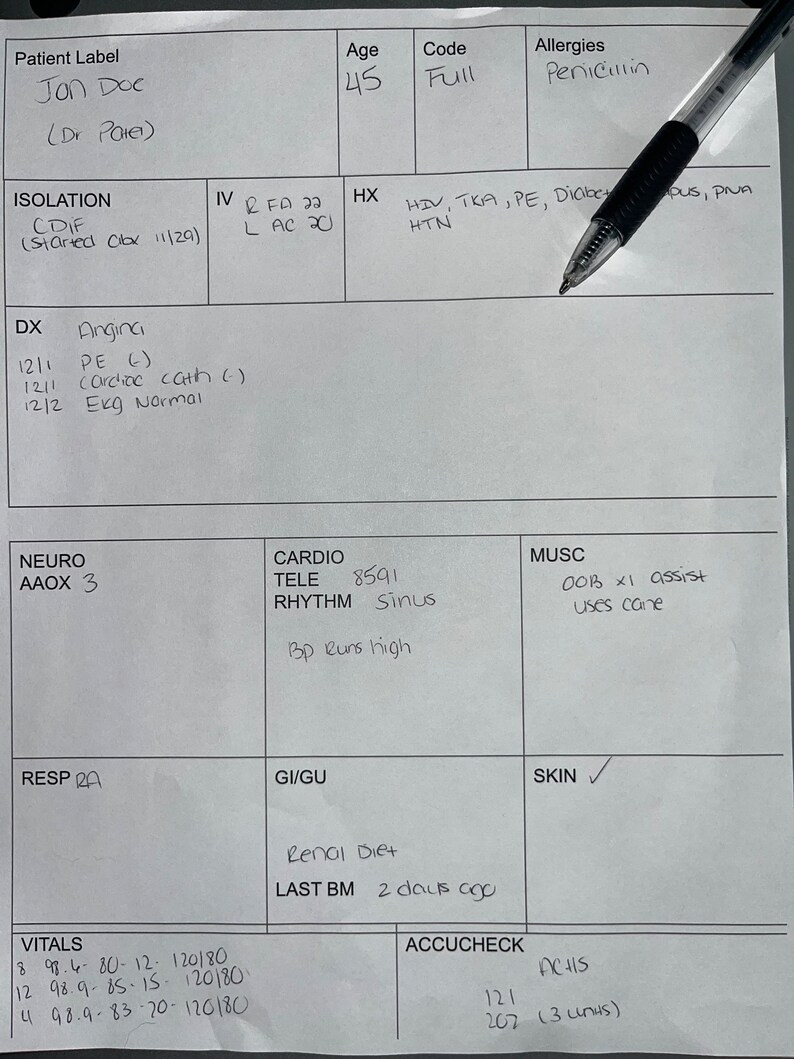 Patient Label
Jon Doe
(Dr Patel)
Age
45
Code
Full
Allergies
Penicillin
ISOLATION
CDiF
(started abx 11/29)
IV R FA 22
L AC 20
HX HIV, TKA, PE, Diabet pus, PNA
HTN
DX Angina
12/1 PE (-)
12/1 Cardiac cath (-)
12/2 Ekg Normal
NEURO
AAOX 3
CARDIO
TELE 8591
RHYTHM Sinus
Bp Runs high
MUSC
OOB x1 assist
uses cane
RESP RA
GI/GU
Renal Diet
LAST BM 2 days ago
SKIN ✓
VITALS
8 98.6- 80- 12- 120/80
12 98.9- 85- 15- 120/80
4 98.9- 83-20- 120/80
ACCUCHECK
ACHS
121
202 (3 units)